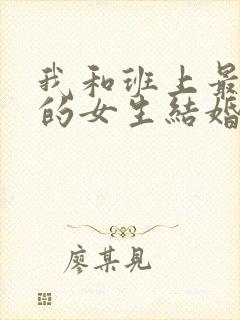 我和班上最
的女生結婚
廖某見